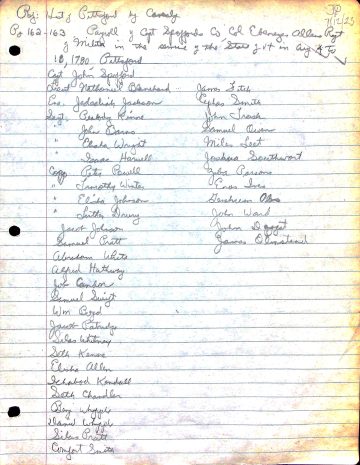 Pg: Hist of Pittsford by Caverly
JP
7/12/23
Pg 162-163 Payroll of Cpt Spaffords Co Col Ebenezer Allens Regt
of Militia in the service of the State of Vt in Aug &
10, 1780 Pittsford
Cpt John Spafford
Lieut Nathaniel Blanchard
Ens. Jedediah Jackson
Sergt. Kinne
" John Barns
" Wright
" Isaac Harwell
Corp Powell
" Timothy Winter
" Elisha Johnson
" Luther Drury
Jacob Johnson
Samuel Pratt
Abraham White
Alfred Hathway
Job
Samuel Swift
Wm Boyd
Jacob Patridge
Silas Whitney
Seth Keeney
Elisha Allen
Ichabod Kendall
Seth Chandler
Benj Whipple
Daniel Whipple
Silas Pratt
Comfort Smith
James Fitch
Smith
John Trask
Samuel Owen
Miles Leet
Joshua Southwort
Parsons
Enos Ives
Gershom
John Ward
John
James Olmstead